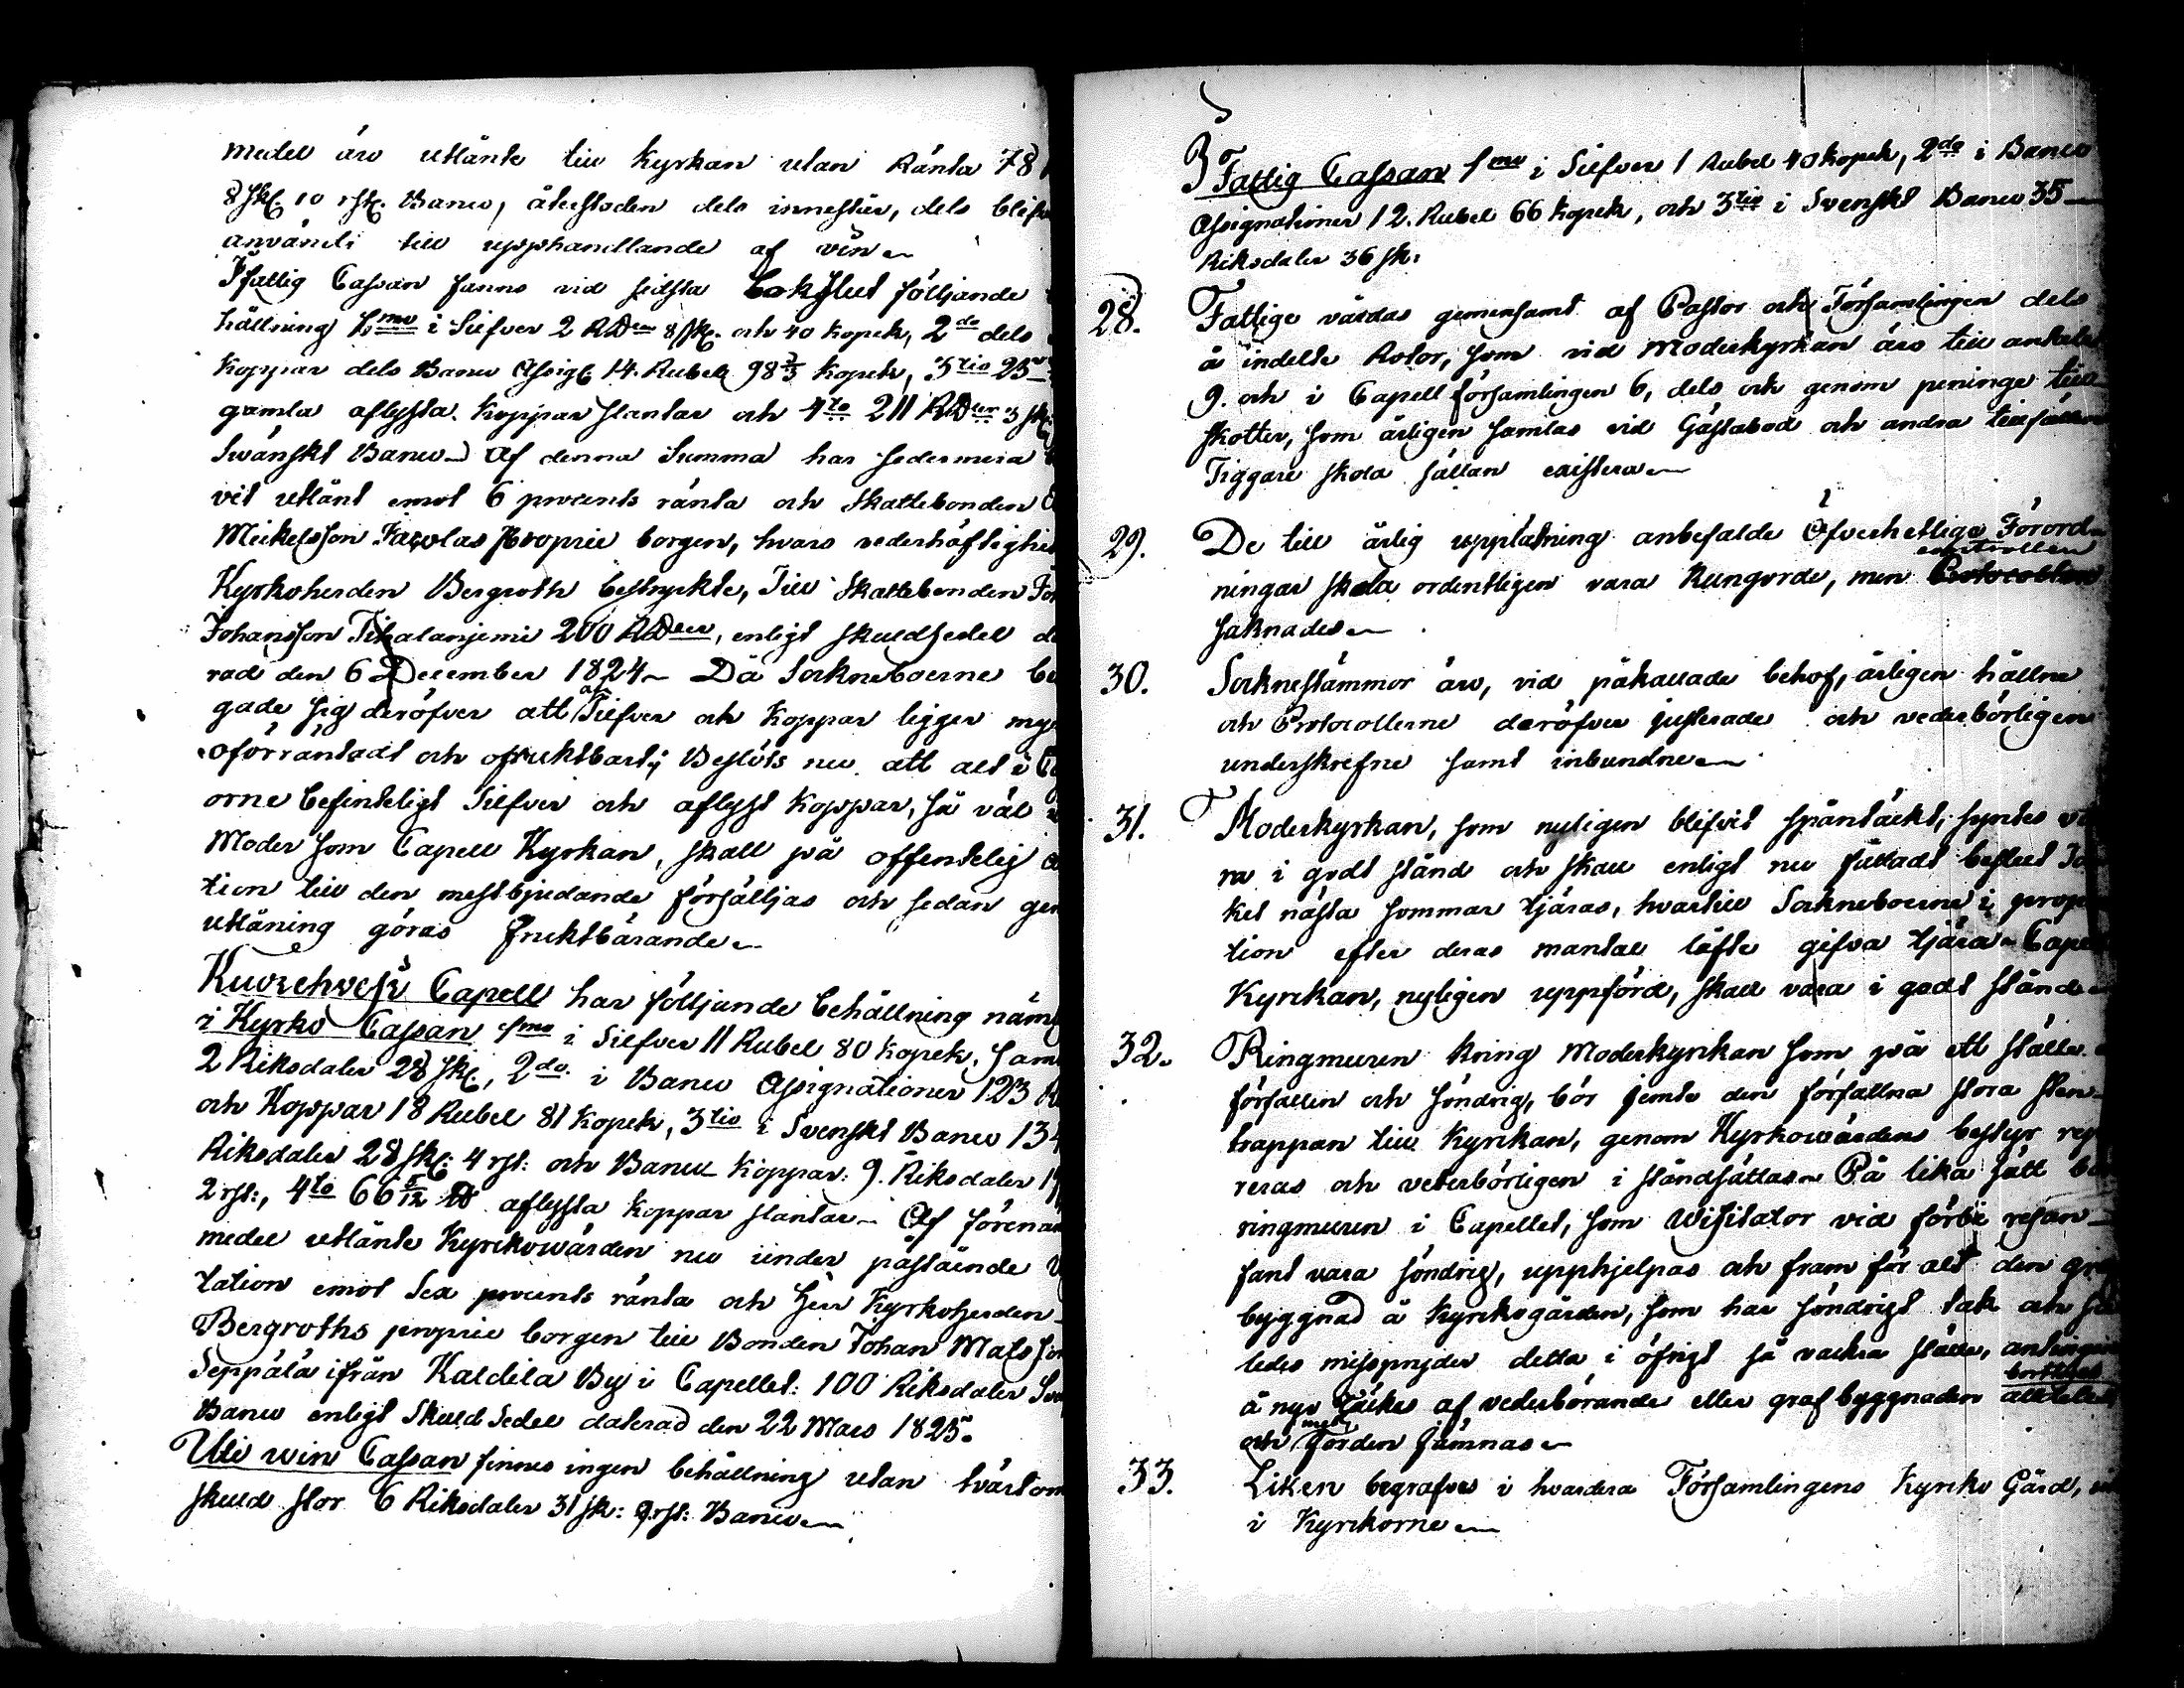 medel äro utlänte till Kyrkan utan Ränta 78
8 sk. 10 rst. Banco, återstoden dels innestår, dels blifv
använd: till upphandlande af vin
I fattig Cassan fanns vid sidsta Bokslut följande
hållning 1mo i Silfver 2 RDr 8 sk. och 40 kopek, 2do dels
Koppar dels Banco Assign 14. Rubel 98 2/3 kopek, 3tio 25
gamla aflysta Koppar slantar och 4to 211 RDr 3 sk:
Swänskt Banco. Af denna Summa har sedermera
vit utlänt emot 6 procents ränta och Skattebonden
Meikelsson Jacolas proprie borgen, hvars vederhäftighet
Kyrkoherden Bergroth bestyrkte, Till Skattebonden Joh
Johansson Tihalanjemi 200 RDr, enligt skuldsedel da
rad den 6 December 1824 Då Sockneboerne be
gade sig deröfver att af Silfver och Koppar ligger my
oförräntadt och ofruktbart; Beslöts nu att alt i Ca
orne befinteligt Silfver och aflyst Koppar, så väl i
Moder som Capell Kyrkan, skall på offentelig a
tion till den mestbjudande försäljas och sedan gen
utläning göras fruktbärande
Kuorehvesi Capell har följande behållning näml
i Kyrko Cassan 1mo i Silfver 11 Rubel 80 kopek, samt
2 Riksdaler 28 sk., 2do i Banco Assignationer 123 R
och Koppar 18 Rubel 81 kopek, 3tio i Svenskt Banco 134
Riksdaler 28 sk: 4 rst: och Banco Koppar: 9. Riksdaler 19
2 rst:, 4to 66 5/12 ℔ aflysta Koppar slantar Af förenäm
medel utlänte Kyrkowärden nu under påstående Vi
tation emot Sex procents ränta och Herr Kyrkoherden
Bergroths proprie borgen till Bonden Johan Matsson
Seppälä ifrån Kaldila By i Capellet: 100 Riksdaler Sve
Banco enligt Skuld Sedel daterad den 22 Mars 1825.
Uti win Cassan finnes ingen behållning utan tvärtom
skuld stor 6 Riksdaler 31 sk: 9 rst: Banco
I Fattig Cassan 1mo i Silfver 1 Rubel 40 kopek, 2do i Banco
Assignationer 12. Rubel 66 kopek, och 3tio i Svenskt Banco 35
Riksdaler 36 sk:
28. Fattige vårdas gemensamt af Pastor och Församlingen dels
å indelte Rotor, som vid Moderkyrkan äro till antalet
9. och i Capell församlingen 6, dels och genom peninge till
skotter, som årligen samlas vid Gästabod och andra tillfällen
Tiggare skola sällan existera
29. De till årlig uppläsning anbefalde Öfverhetlige Förord
ningar skola ordentligen vara Kungorde, men Protocollen controllen
saknades
30. Socknestämmor äro, vid påkallade behof, årligen hållne
och Protocollerne deröfver justerade och vederbörligen
underskrefne samt inbundne
31. Moderkyrkan, som nyligen blifvit spåntäckt, syntes va
ra i godt stånd och skall enligt nu fattadt beslut Ta
ket nästa sommar tjäras, hvartill Sockneboerne i propor
tion efter deras mantal läfte gifva tjära Capell
Kyrkan, nyligen uppförd, skall vara i godt stånd
32. Ringmuren kring Moderkyrkan som på ett ställe
förfallen och söndrig, bör jemte den förfallna stora sten
trappan till Kyrkan, genom Kyrkowärdens bestyr rep
reras och vederbörligen i ståndsättas På lika sätt bö
ringmuren i Capellet, som Wisitator vid förbi resan
fant vara söndrig, upphjelpas och fram för alt den graf
byggnad å Kyrkogården, som har söndrigt tak och så
ledes misspryder detta i öfrigt så vackra ställe, antingen
å nyo täckes af vederbörande eller graf byggnaden alldeles borttages
och med jorden jämnas
33. Liken begrafvas i hvardera Församlingens Kyrko Gård,
i Kyrkorne